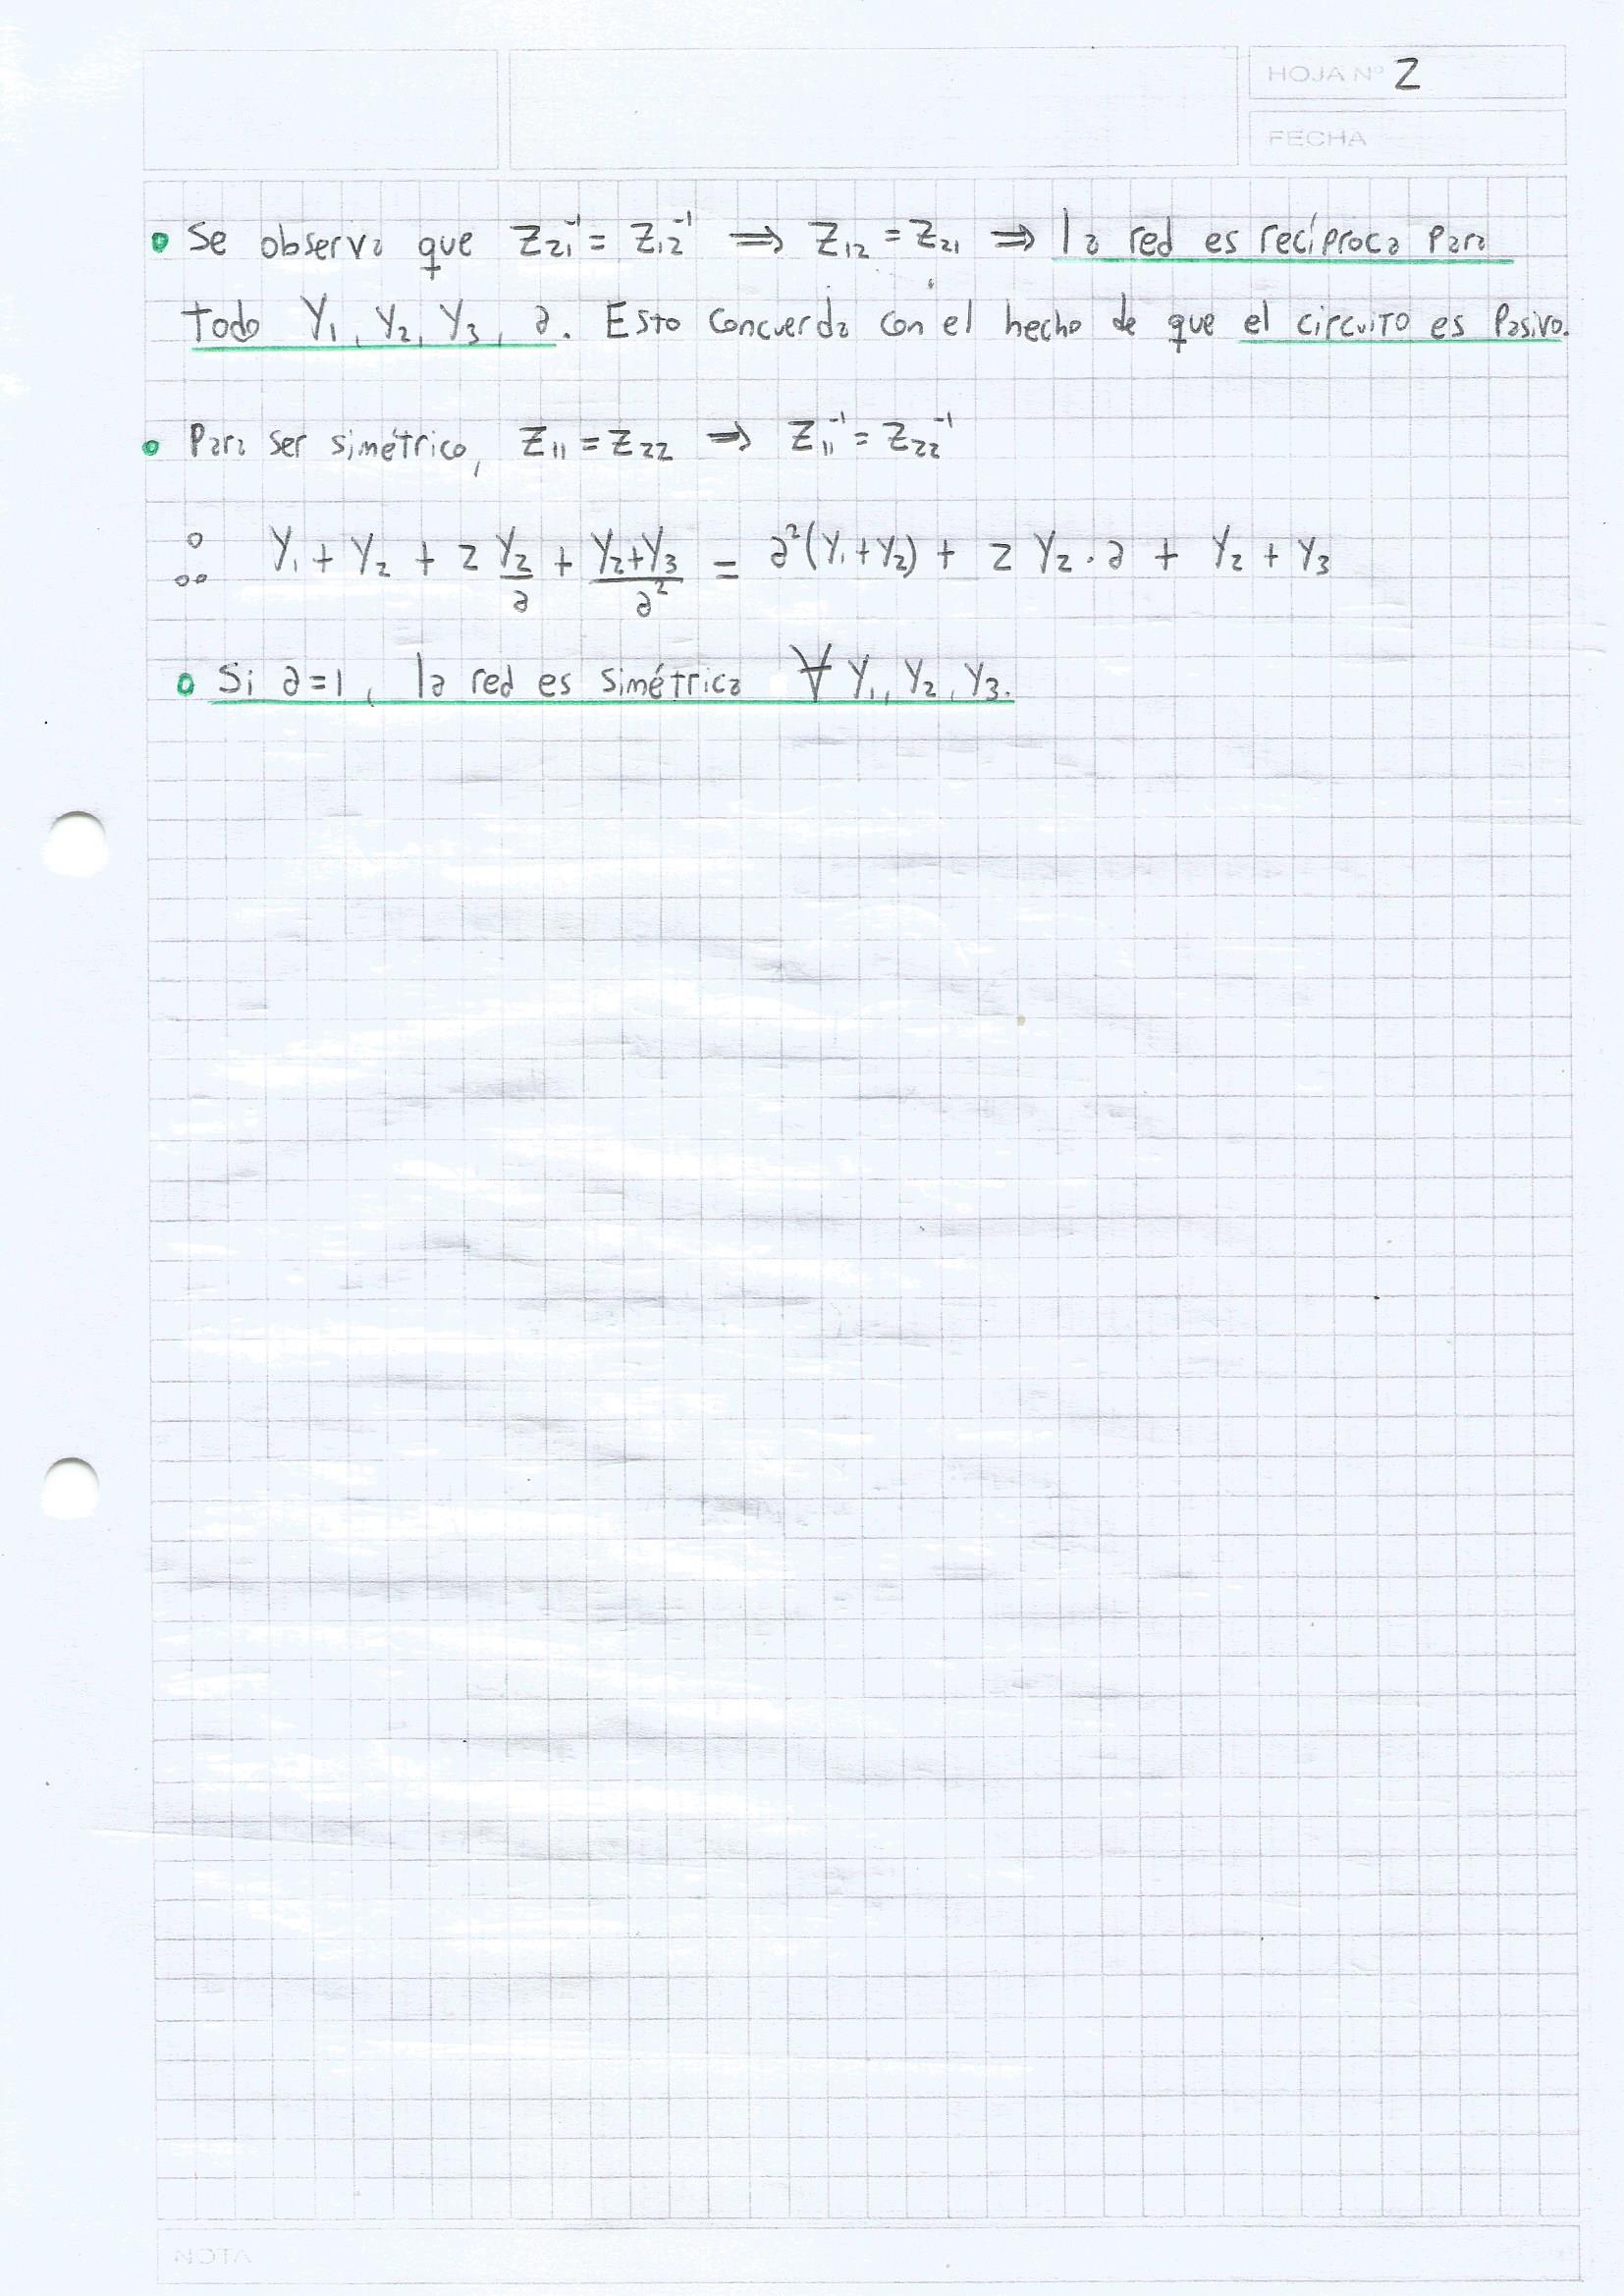 HOJA Nº 2
FECHA
• Se observa que Z₂₁⁻¹ = Z₁₂⁻¹ ⇒ Z₁₂ = Z₂₁ ⇒ la red es recíproca para
todo Y₁, Y₂, Y₃, a. Esto concuerda con el hecho de que el circuito es pasivo.
• Para ser simétrico, Z₁₁ = Z₂₂ ⇒ Z₁₁⁻¹ = Z₂₂⁻¹
∴ Y₁ + Y₂ + 2 Y₂/a + (Y₂+Y₃)/a² = a²(Y₁+Y₂) + 2 Y₂·a + Y₂ + Y₃
• Si a=1, la red es simétrica ∀ Y₁, Y₂, Y₃.